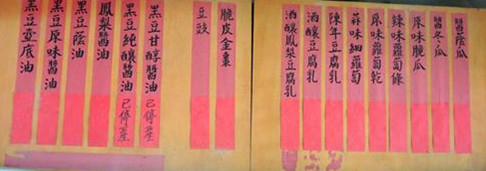 醬蔭瓜
醬冬瓜
原味脆瓜
辣味蘿蔔條
原味蘿蔔乾
蒜味細蘿蔔
陳年豆腐乳
酒釀豆腐乳
酒釀鳳梨豆腐乳
脆皮金棗
豆豉
黑豆甘醇醬油 已停產
黑豆純釀醬油 已停產
鳳梨醬油
黑豆蔭油
黑豆原味醬油
黑豆壺底油